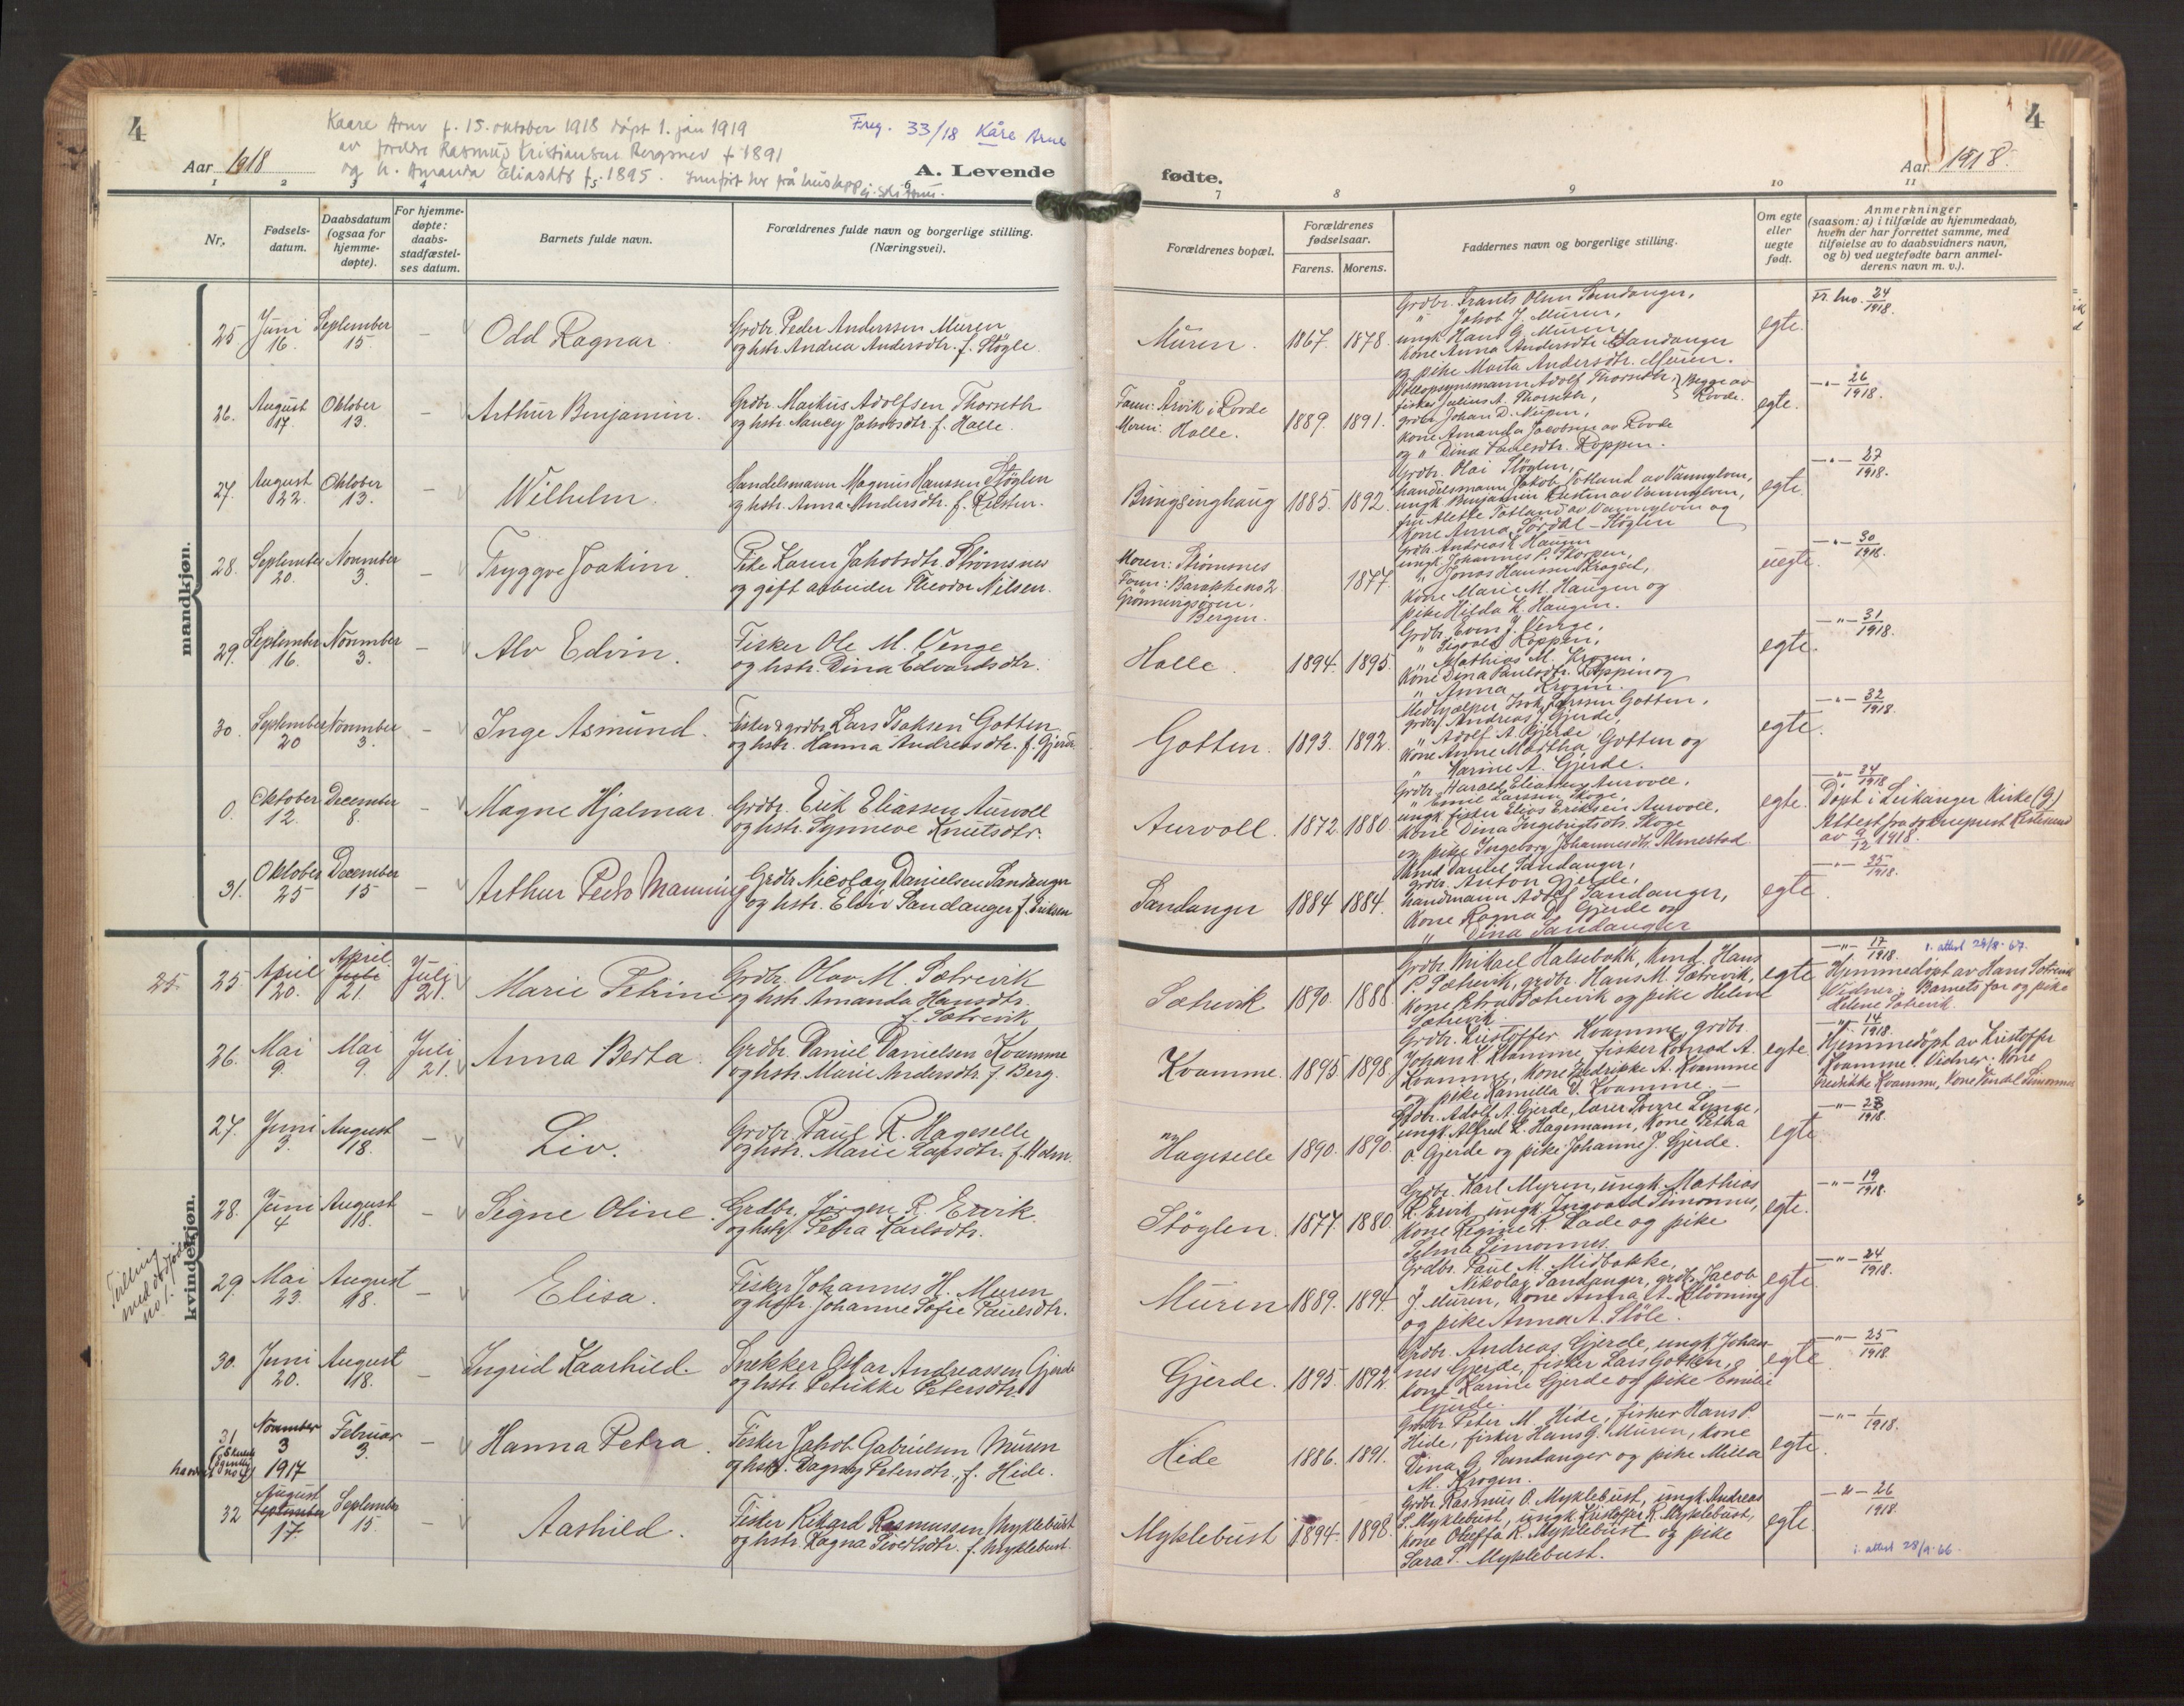 4
Kaare Arne f. 15. oktober 1918 døpt 1. jan 1919
av foreldre Rasmus Kristiansen Bergsnev f 1891
og h. Amanda Eliasdtr f. 1895.
Freg. 33/18 Kåre Arne
Aar 1918
A. Levende
1 2 3 4 5 6
Nr.
Fødsels-
datum.
Daabsdatum
(ogsaa for
hjemme-
døpte).
For hjemme-
døpte:
daabs-
stadfæstel-
ses datum.
Barnets fulde navn.
Forældrenes fulde navn og borgerlige stilling.
(Næringsvei).
mandkjøn.
25 Juni 16. September 15. – Odd Ragnar.
Grdbr. Peder Anderssen Muren
og hstr. Andrea Andersdtr. f. Støgle.
26. August 17 Oktober 13. – Arthur Benjamin.
Grdbr. Markus Adolfsen Thorseth
og hstr. Nancy Jakobsdtr. f. Halle.
27. August 22. Oktober 13. – Wilhelm.
Handelsmann Magnus Hanssen Støglen
og hstr. Anna Andersdtr. f. Kusten.
28. September 20. November 3. – Tryggve Joakim.
Pike Karen Jakobsdtr. Strømsnes
og gift arbeider Theodor Nilsen.
29. September 16. November 3. – Alv Edvin.
Fisker Ole M. Venge
og hstr. Dina Edvardsdtr.
30. September 20 November 3. – Inge Asmund.
Fisker & grdbr Lars Isaksen Gotten
og hstr. Hanna Andreasdtr. f. Gjerde
0. Oktober 12. December 8. – Magne Hjalmar.
Grdbr. Erik Eliassen Aurvoll
og hstr. Synneve Knutsdtr.
31. Oktober 25 December 15 – Arthur Peder Manning
Grdbr Nicolay Danielsen Sandanger
og hstr. Elin Sandanger f. Eriksen
kvindekjøn.
25. 25. April 20. April Juli 21. Juli 21. Marie Petrine
Grdbr. Olav M. Sætrevik
og hstr. Amanda Hansdtr.
f. Sætrevik
26. Mai 9. Mai 9. Juli 21. Anna Berta.
Grdbr. Daniel Danielsen Kvamme
og hstr. Marie Andersdtr. f. Berg.
27. Juni 3. August 18. – Liv.
Grdbr. Paul R. Hageselle
og hstr. Marie Larsdtr. f. Holm.
28. Juni 4 August 18. – Signe Oline.
Grdbr. Jørgen R. Ervik.
og hstr. Petra Karlsdtr.
Tvilling
med dødfødt
no 1.
29. Mai 23. August 18. – Elisa.
Fisker Johannes H. Muren
og hstr. Johanne Sofie Paulsdtr.
30. Juni 20. August 18. – Ingrid Kaarhild.
Snekker Oskar Andreassen Gjerde
og hstr. Petrikke Petersdtr.
31 November 3 1917 Februar 3. – Hanna Petra.
Fisker Jakob Gabrielsen Muren
og hstr. Dagny Petersdtr., f. Hide.
32 August September 17 September 15. – Aashild.
Fisker Rikard Rasmussen Myklebust
og hstr. Ragna Sivertsdtr. f. Myklebust.
4
Aar 1918.
fødte.
7 8 9 10 11
Forældrenes bopæl.
Forældrenes
fødselsaar.
Farens. Morens.
Faddernes navn og borgerlige stilling.
Om egte
eller
uegte
født.
Anmerkninger
(saasom: a) i tilfælde av hjemmedaab,
hvem der har forrettet samme, med
tilføielse av to daabsvidners navn,
og b) ved uegtefødte barn anmel-
derens navn m. v.).
Muren. 1867. 1878.
Grdbr. Frants Olsen Sandanger,
" Jakob J. Muren,
ungk Hans G. Muren
kone Anna Andersdtr. Sandanger
og pike Marta Andersdtr. Muren.
egte. Fr. no. 24/1918.
Faren: Årvik i Rovde
Moren: Halle. 1889. 1891.
Opsynsmann Adolf Thorseth } Begge av
fisker Julius A. Thorseth, } Rovde.
grdbr. Johan D. Nupen,
kone Amanda Jacobsen av Rovde
og " Dina Paulsdtr. Koppen.
egte. –"– 26/1918.
Bringsinghaug 1885. 1892.
Grdbr. Olai Støglen,
handelsmann Jakob Totland av Vannylven,
ungk Benjamin Kusten av Vannylven,
fru Alette Totland av Vannylven og
kone Anna Sørdal – Støglen
egte. –"– 27/1918.
Moren: Strømsnes
Faren: Barakke no 2
Grønnevigsøren.
Bergen. 1877.
Grdbr. Andreas L. Haugen
ungk Johannes P. Skorpen,
" Jonas Hanssen Krogset,
kone Marie M. Haugen og
pike Hilda K. Haugen.
uegte. –"– 30/1918.
Halle. 1894. 1895.
Grdbr. Even J. Venge,
" Sigvald Koppen,
" Mathias M. Krogen.
kone Dina Paulsdtr. Koppen og
" Anna Krogen.
egte. –"– 31/1918.
Gotten. 1893. 1892.
Medhjælper Isak Larssen Gotten,
grdbr. Andreas J. Gjerde,
" Adolf A. Gjerde
kone Anne Martha Gotten og
" Karine A. Gjerde.
egte. –"– 32/1918.
Aurvoll. 1872. 1880.
Grdbr. Harald Eliassen Aurvoll,
" Emil Larssen Skoge,
ungk fisker Elias Eriksen Aurvoll,
kone Dina Ingebrigtsdtr. Skoge
og pike Ingeborg Johannesdtr. Almestad.
egte. –"– 34/1918
Døpt i Leikanger Kirke
Attest fra sokneprest
av 9/12 1918.
Sandanger 1884 1884.
Daniel Sandanger,
grdbr. Anton Gjerde,
handmann Adolf Sandanger,
kone Ragna D. Gjerde og
" Dina Sandanger
egte –"– 35/1918.
Sætrevik 1890. 1888.
Grdbr. Mikael Halsebakk, kand. Hans
P. Sætrevik, grdbr. Hans M. Sætrevik,
kone Petra Sætrevik og pike Helene
Sætrevik.
egte –"– 17/1918. i. attest 29/8-67.
Hjemmedøpt av Hans Sætrevik
Vidner: Barnets far og pike
Helene Sætrevik.
Kvamme. 1895 1898.
Grdbr. Kristoffer Kvamme, grdbr.
Johan K. Kvamme, fisker Konrad A.
Kvamme, kone Fredrikke A. Kvamme
og pike Kamilla D. Kvamme. –
egte. –"– 14/1918.
Hjemmedøpt av Kristoffer
Kvamme. Vidner: Kone
Fredrikke Kvamme, kone Simonnes
Hageselle 1890. 1890.
Grdbr. Adolf A. Gjerde, lærer Sverre Lunge,
ungk. Alfred L. Hagemann, kone Petra
O. Gjerde og pike Johanne J. Gjerde.
egte. –"– 23/1918.
Støglen. 1877. 1880.
Grdbr. Karl Myren, ungk. Mathias
R. Ervik, ungk. Ingvald Simonnes,
kone Regine R. Lade og pike
Selma Simonnes.
egte. –"– 19/1918.
Muren 1889. 1894.
Grdbr. Paul M. Midbakke,
" Nikolay Sandanger, grdb. Jacob
J. Muren, kone Anna A. Kløvning
og pike Anna A. Støle.
egte. –"– 24/1918.
Gjerde. 1895. 1892.
Grdbr. Andreas Gjerde, ungk Johan-
nes Gjerde, fisker Lars Gotten,
kone Karine Gjerde og pike Emilie
Gjerde.
egte. –"– 25/1918.
Hide 1886. 1891.
Grdbr. Peter M. Hide, fisker Hans P.
Hide, fisker Hans G. Muren, kone
Dina G. Sandanger og pike Milla
M. Krogen.
egte. –"– 1/1918.
Myklebust 1894. 1898.
Grdbr. Rasmus O. Myklebust, ungk Andreas
S. Myklebust, ungk. Kristoffer R. Myklebust,
kone Oleffa R. Myklebust og pike
Sara S. Myklebust.
egte. –"– 26/1918.
i. attest 28/9-66.